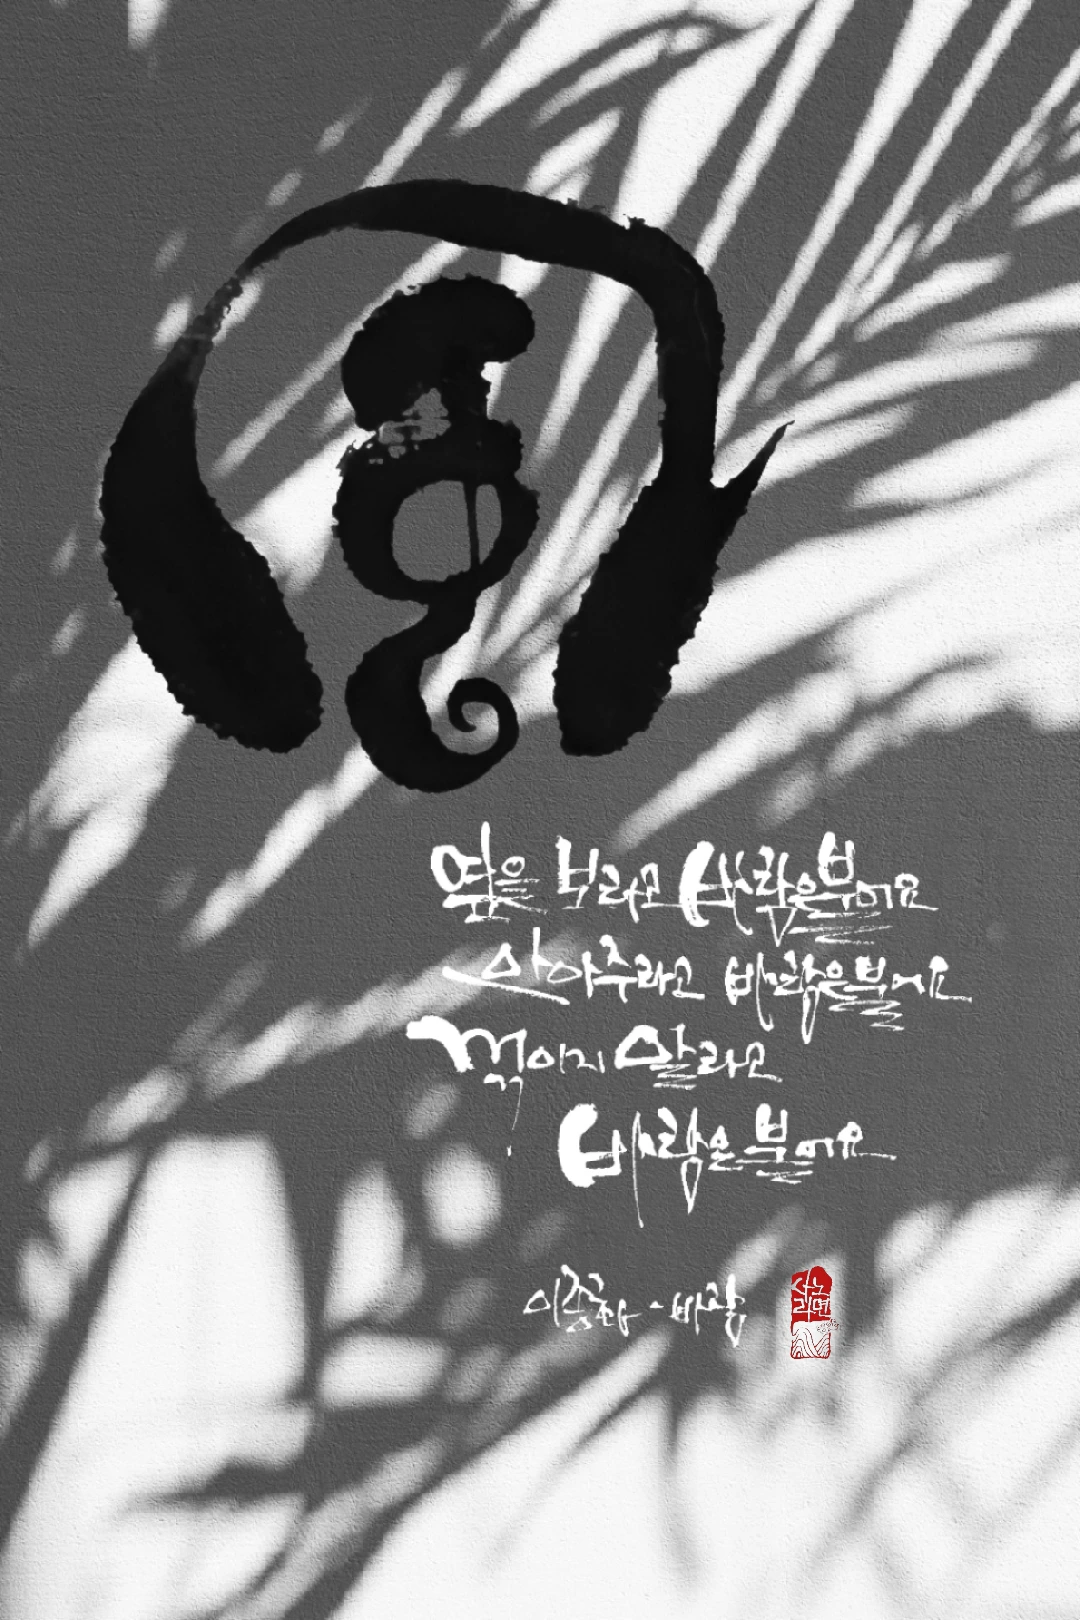 風
옆을 보라고 바람은 불어요
안아주라고 바람은 불어요
꺾이지 말라고
바람은 불어요
이종화 - 바람